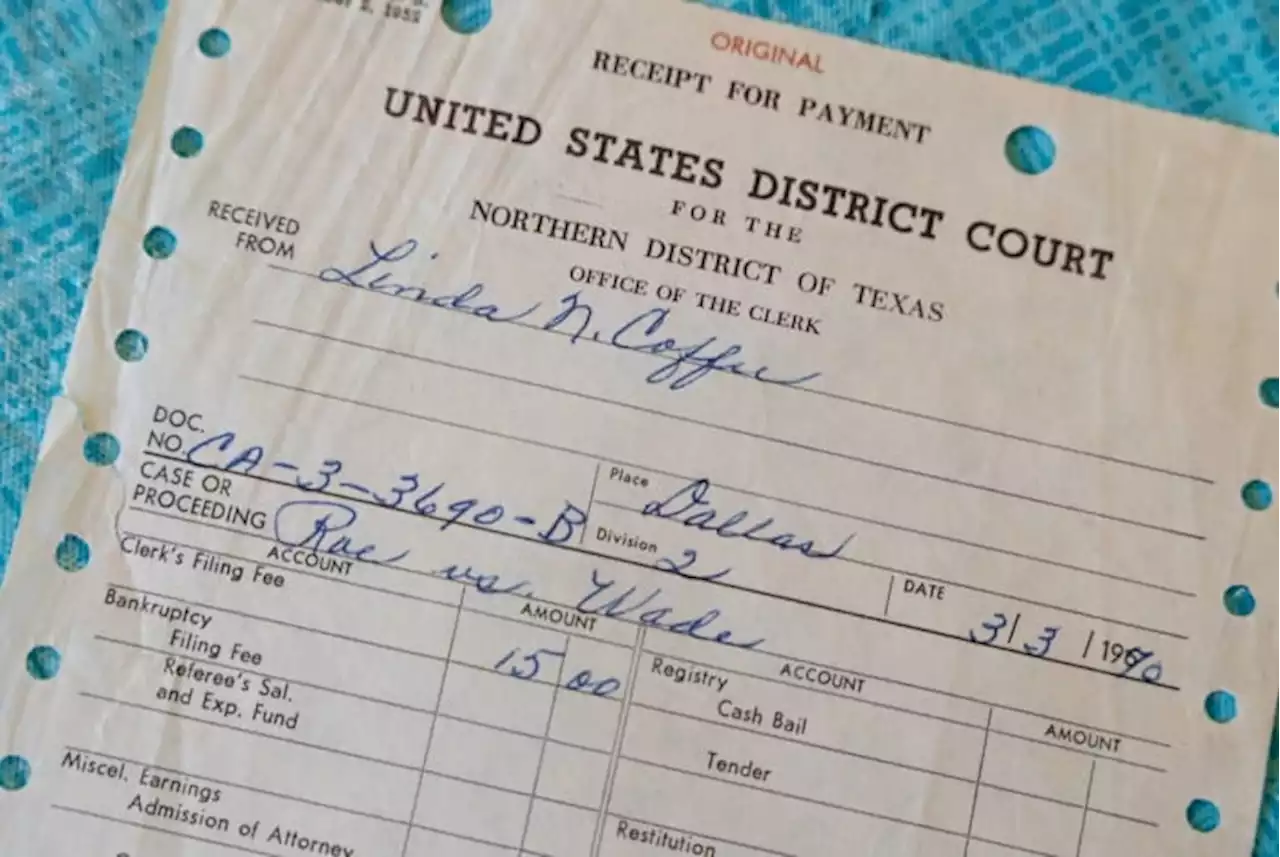 2, 1952
ORIGINAL
RECEIPT FOR PAYMENT
UNITED STATES DISTRICT COURT
FOR THE
NORTHERN DISTRICT OF TEXAS
OFFICE OF THE CLERK
RECEIVED
FROM
Linda N. Coffee
DOC.
NO. CA-3-3690-B
Place Dallas
Division 2
CASE OR
PROCEEDING Roe vs. Wade
DATE 3/3/1970
ACCOUNT AMOUNT ACCOUNT AMOUNT
Clerk's Filing Fee 15 00
Bankruptcy
Filing Fee
Referee's Sal.
and Exp. Fund
Miscel. Earnings
Admission of Attorney
Registry
Cash Bail
Tender
Restitution